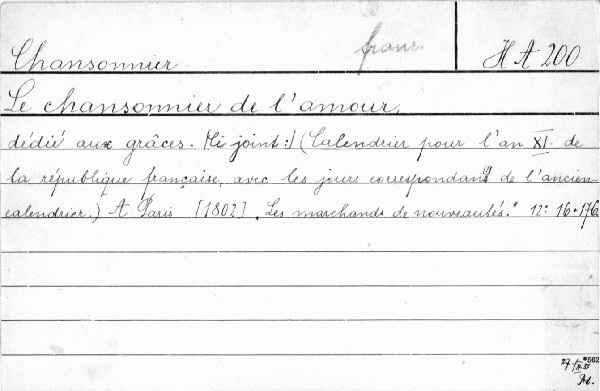 Chansonnier franc. H A 200
Le chansonnier de l'amour,
dédié aux grâces. /Ci joint:/ (Calendrier pour l'an XI. de
la république française, avec les jours correspondants de l'ancien
calendrier.) A Paris [1802] „Les marchands de nouveautés." 12° 16+176.